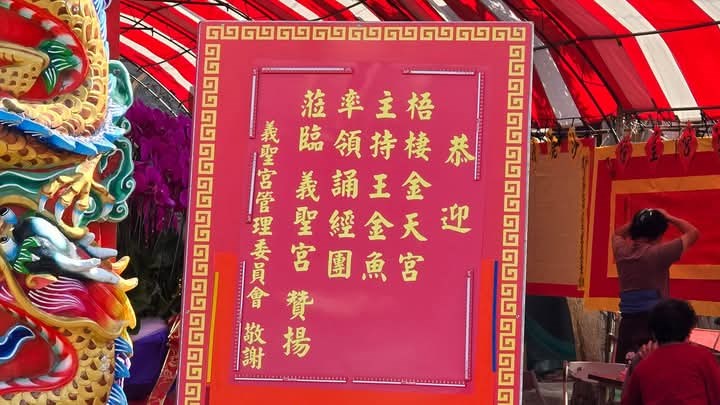 恭迎
梧棲金天宮
主持王金魚
率領誦經團
蒞臨 義聖宮 贊揚
義聖宮管理委員會 敬謝